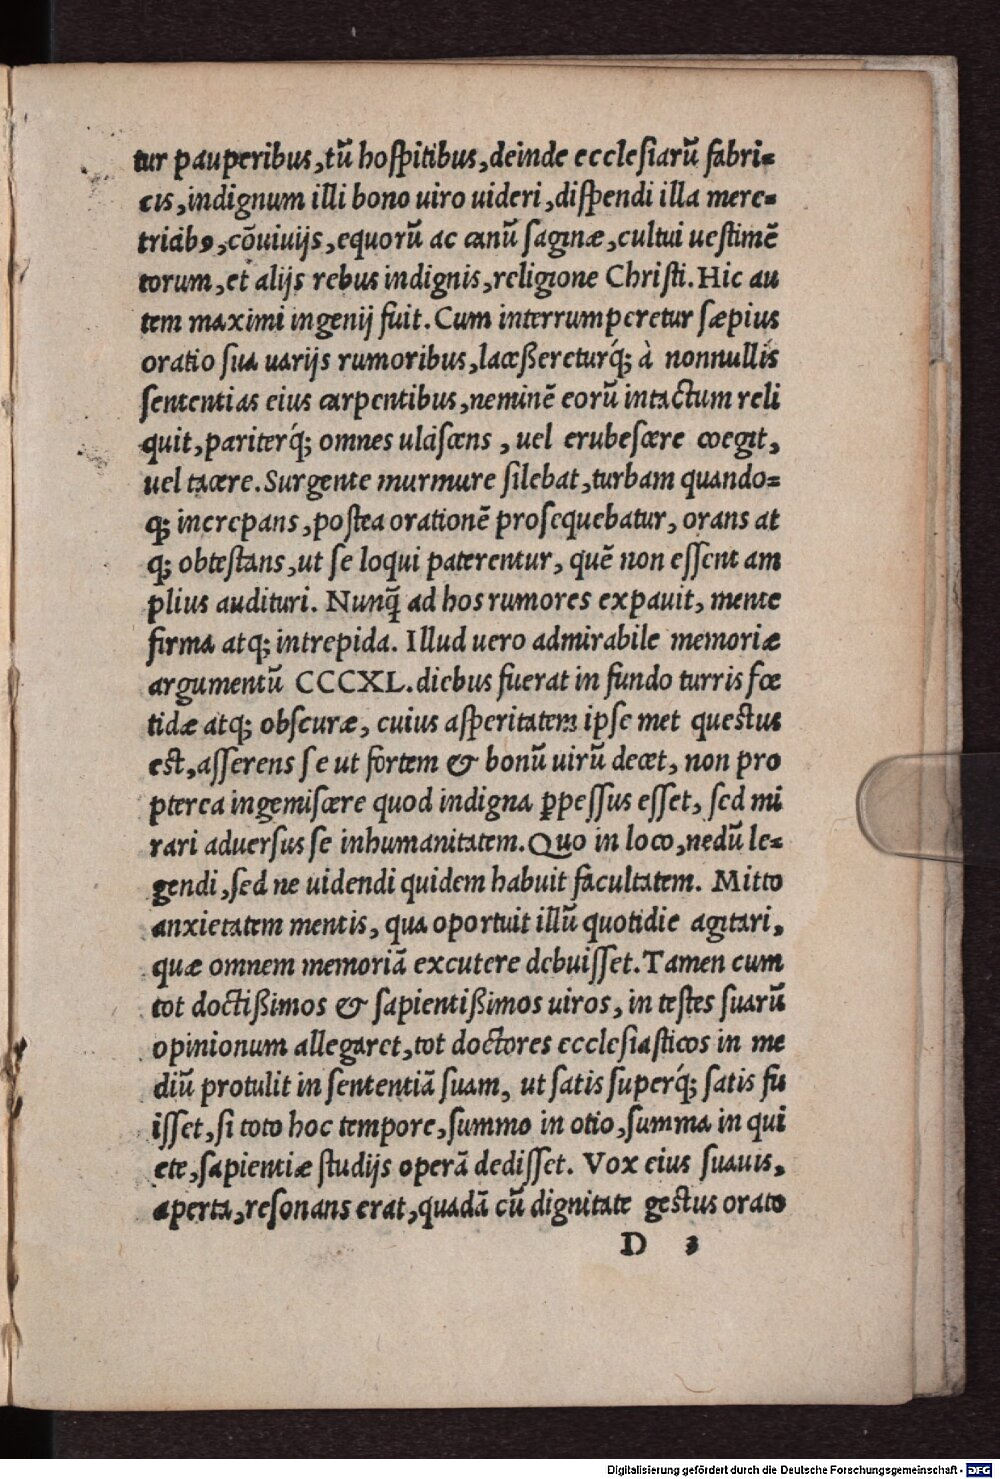 tur pauperibus,tũ hoſpitibus,deinde eccleſiarũ fabri=
cis,indignum illi bono uiro uideri,diſpendi illa mere=
tricibꝰ,cõuiuijs,equorũ ac canũ ſaginæ,cultui ueſtimẽ
torum,et alijs rebus indignis,religione Chriſti.Hic au
tem maximi ingenij fuit.Cum interrumperetur ſæpius
oratio ſua uarijs rumoribus,laceßereturq́; à nonnullis
ſententias eius carpentibus,neminẽ eorũ intactum reli
quit,pariterq́; omnes ulciſcens, uel erubeſcere coegit,
uel tacere.Surgente murmure ſilebat,turbam quando=
q; increpans,poſtea orationẽ proſequebatur, orans at
q; obteſtans,ut ſe loqui paterentur, quẽ non eſſent am
plius audituri. Nunq̃ ad hos rumores expauit, mente
firma atq; intrepida. Illud uero admirabile memoriæ
argumentũ CCCXL.diebus fuerat in fundo turris fœ
tidæ atq; obſcuræ, cuius aſperitatem ipſe met queſtus
eſt,aſſerens ſe ut fortem & bonũ uirũ decet, non pro
pterea ingemiſcere quod indigna ꝑpeſſus eſſet, ſed mi
rari aduerſus ſe inhumanitatem.Quo in loco,nedũ le=
gendi,ſed ne uidendi quidem habuit facultatem. Mitto
anxietatem mentis, qua oportuit illũ quotidie agitari,
quæ omnem memoriã excutere debuiſſet.Tamen cum
tot doctißimos & ſapientißimos uiros, in teſtes ſuarũ
opinionum allegaret,tot doctores eccleſiaſticos in me
diũ protulit in ſententiã ſuam, ut ſatis ſuperq́; ſatis fu
iſſet,ſi toto hoc tempore,ſummo in otio,ſumma in qui
ete,ſapientiæ ſtudijs operã dediſſet. Vox eius ſuauis,
aperta,reſonans erat,quadã cũ dignitate geſtus orato
D 3
Digitalisierung gefördert durch die Deutsche Forschungsgemeinschaft - DFG